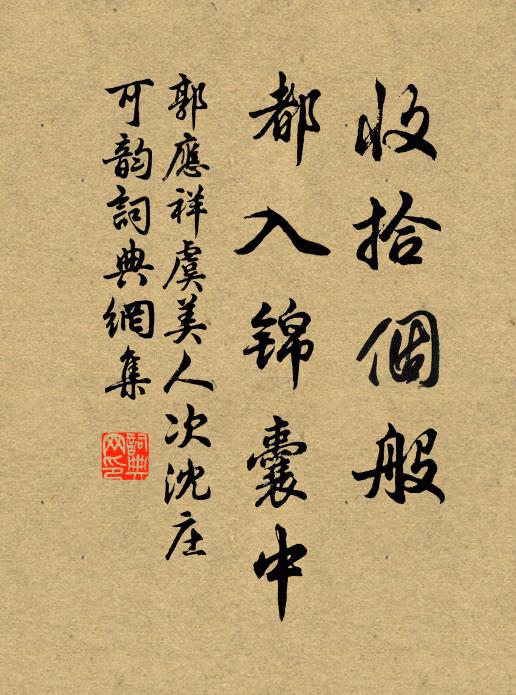 收拾個般
都入锦囊中
郭應祥虞美人次沈庄
可韵詞典網集
詞典
网印